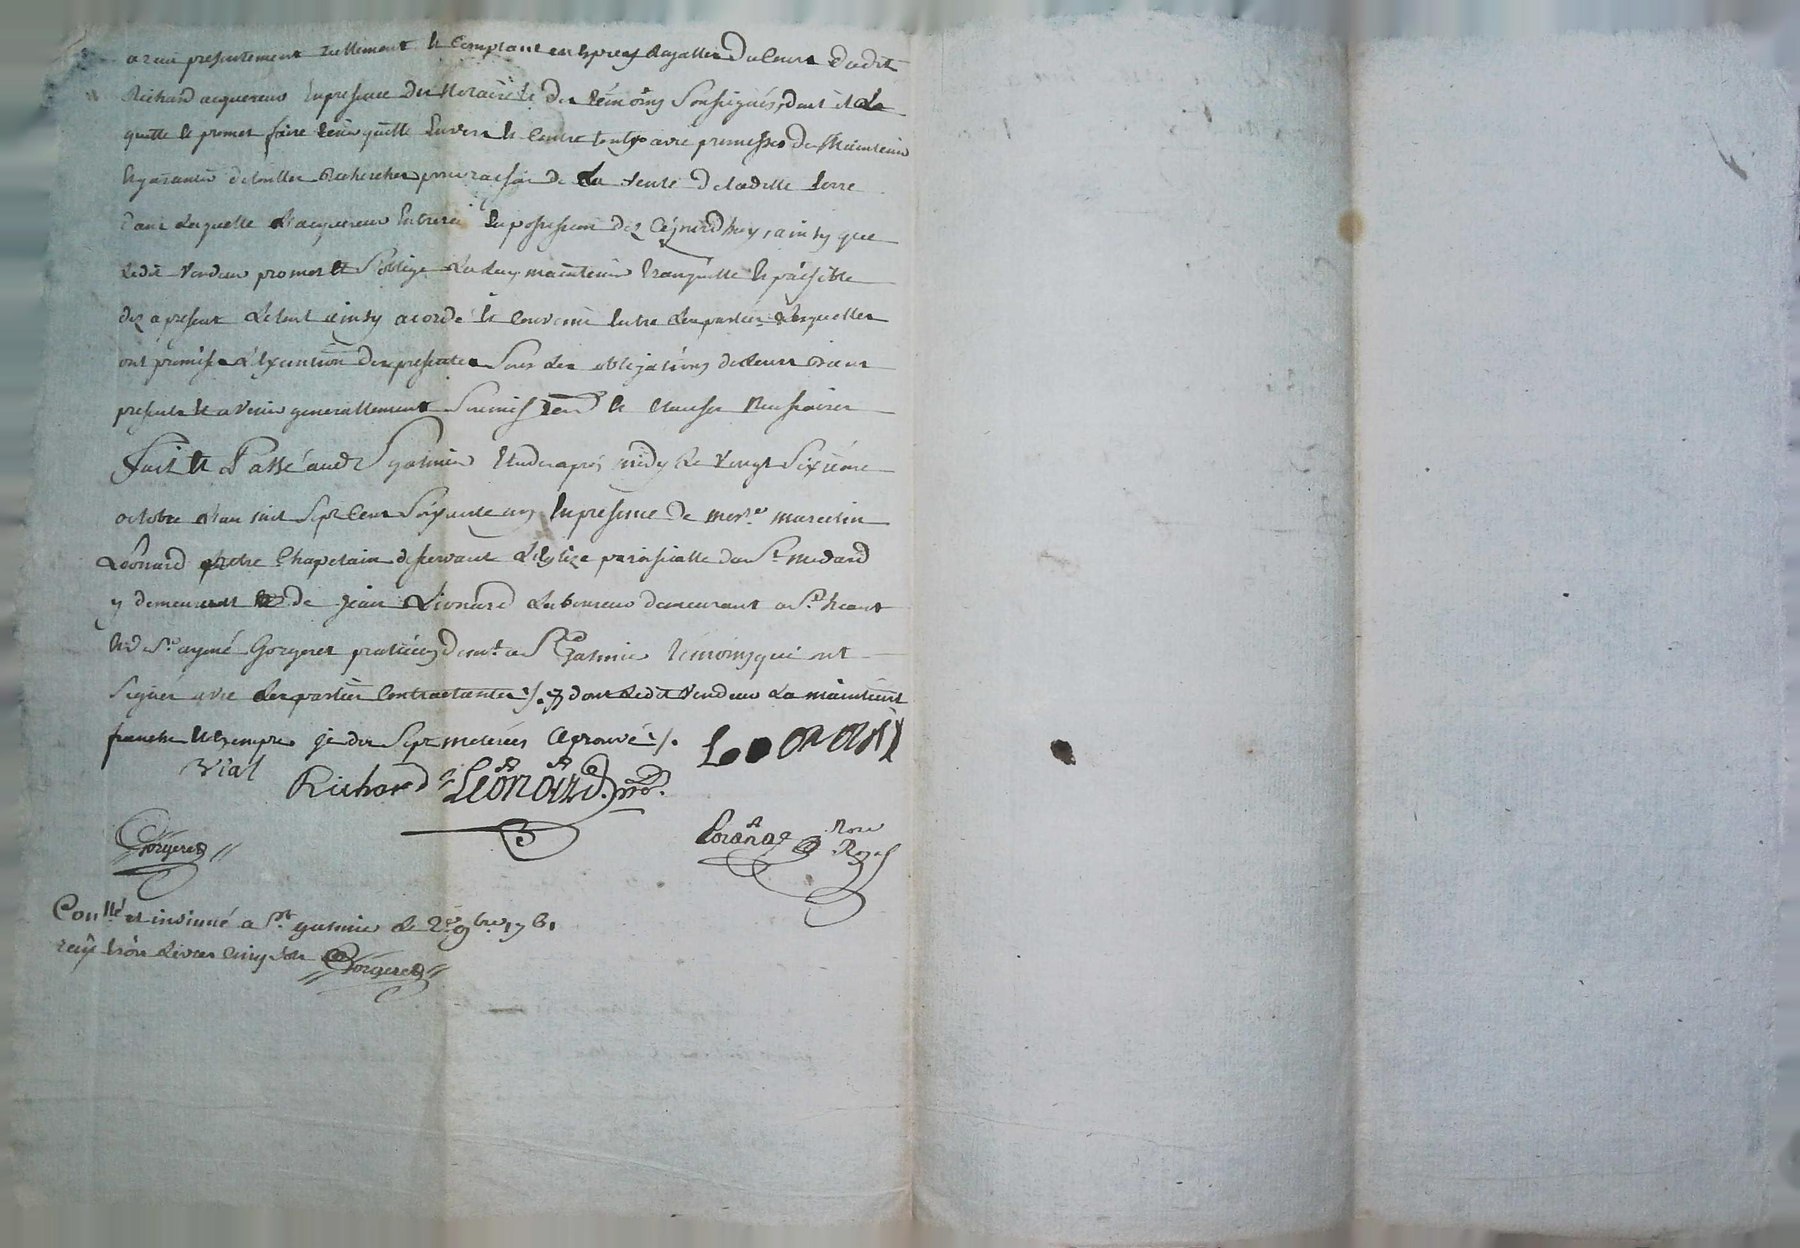 a reçu presentement reellement et comptant en especes dugatter Du Cours dudit
Richard acquereur en presence Du Notaire et des témoins soussignés, dont il le
quitte et promet faire tenir quitte envers et contre tous avec promesses de Maintenir
et garantir de touttes Recherches pour raison de La vente De laditte terre
dans laquelle l'acquereur Entrera En possession dez Cejourdhuy, ainsy que
Ledit vendeur promet et s'oblige de luy maintenir tranquille et paisible
dez apresent Le tout ainsy acordé et Convenu Entre les parties Lesquelles
ont promis l'execution des presentes sous les obligations de leurs biens
presents et avenir generallement soumis et clauses Necessaires
Fait et Passé aud St galmier Etude après midy le vingt sixieme
octobre l'an mil sept cent soixante un En presence de mere marcelin
Léonard prêtre Chapelain desservant L'Eglize paroissialle de St medard
y demeurant et de jean Léonard Laboureur demeurant a St heant
et de sr aymé Gorgeret praticien demt a St Galmier temoins qui ont
signé avec les parties Contractantes ./. dont ledit vendeur La maintient
franche et Exempte des sept meterées aprouvé ./. Leonard
Vial Richard Léonard. ptre.
Gorgeret Not Royal
Conllé et insinué a St galmier le 2e 9bre 1761
reçu trois Livres Cinq sols Gorgeret